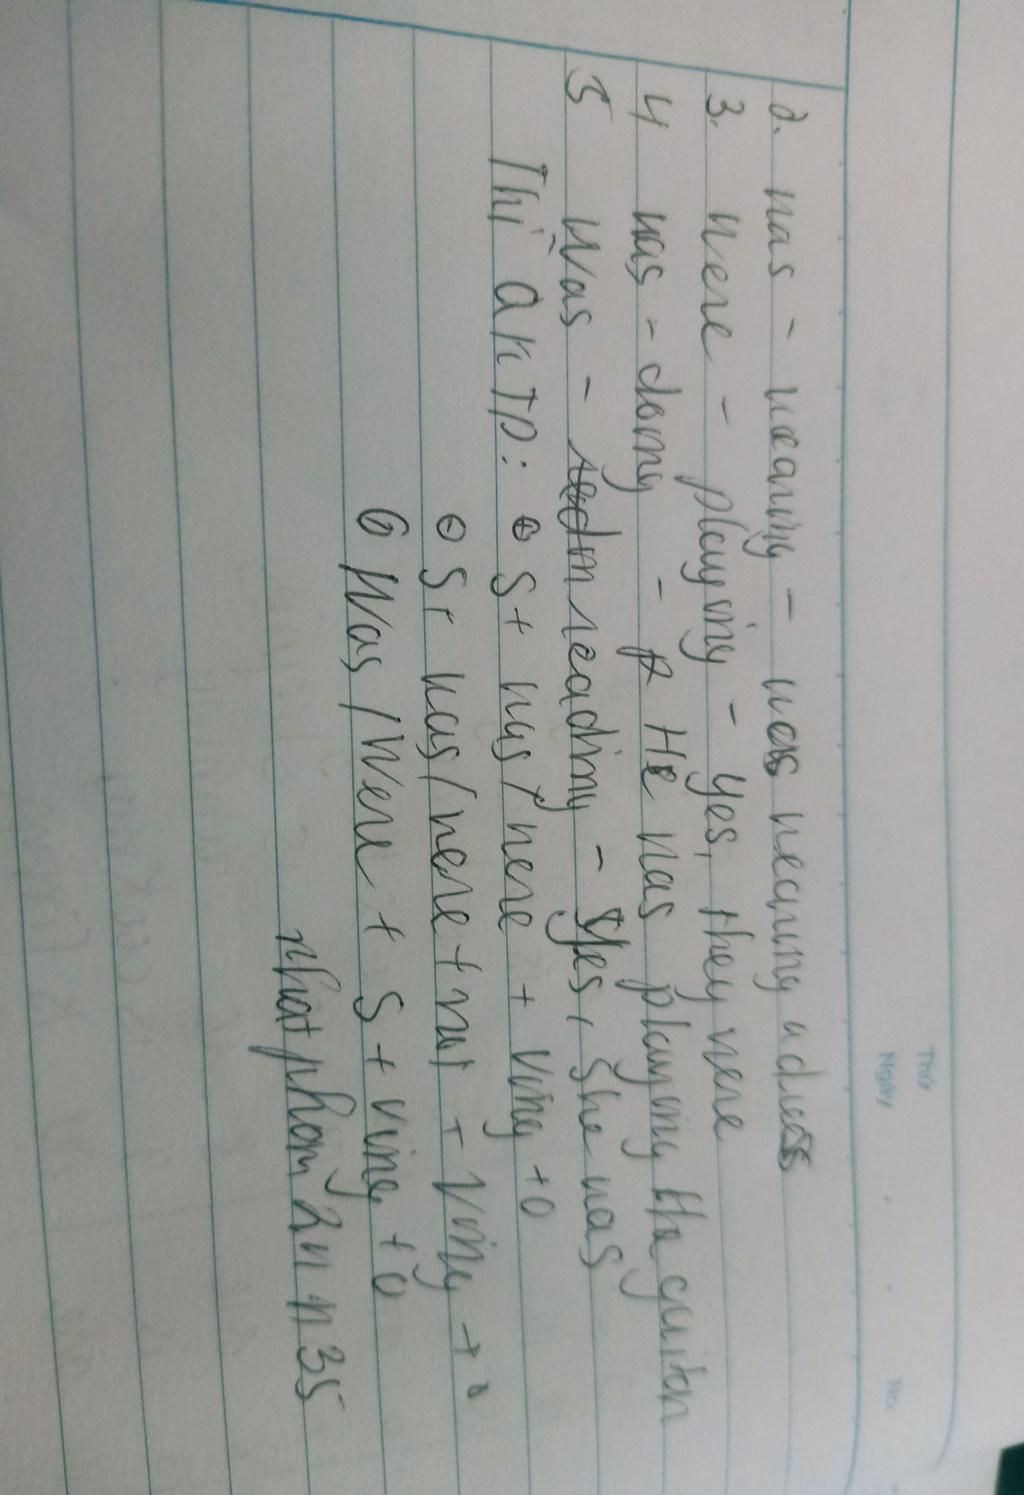 Thứ
Ngày No.
2. was - wearing - was wearing a dress
3. were - playing - Yes, they were
4 was - doing - He was playing the guitar
5 was - reading - Yes, she was
Thì QKTD: ⊕ S + was / were + Ving + O
⊖ S + was / were + not + Ving + O
Was / Were + S + Ving + O